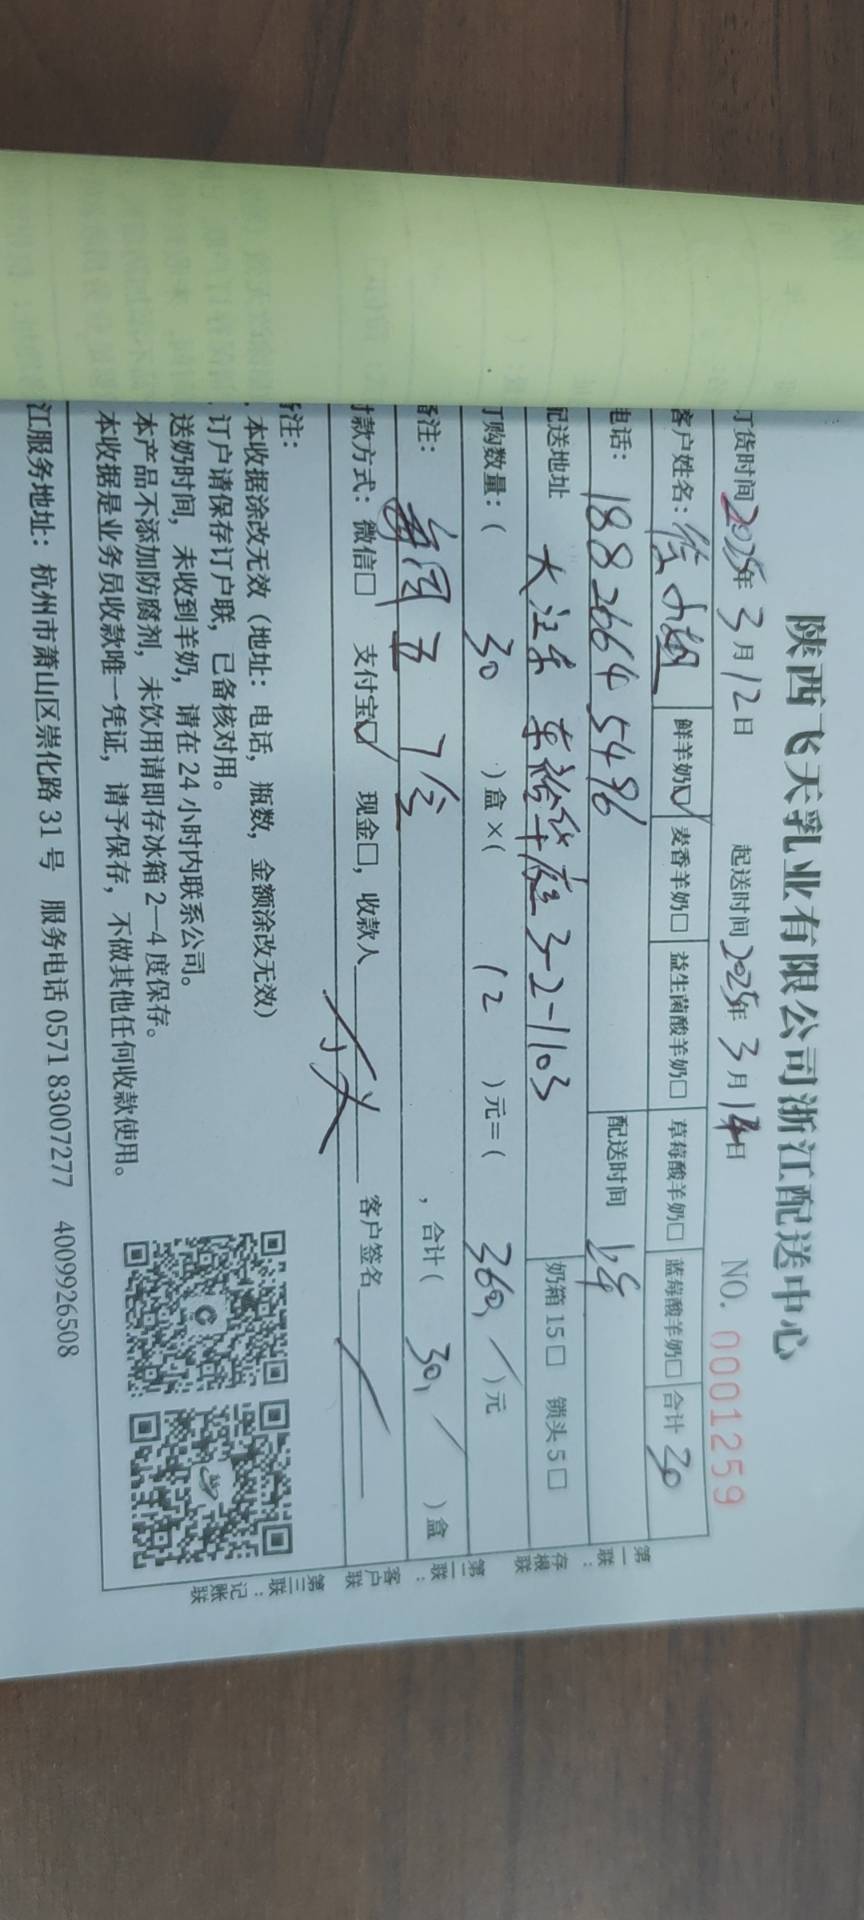 陕西飞天乳业有限公司浙江配送中心
订货时间2025年3月12日 起送时间2025年3月14日 NO. 0001259
客户姓名: 徐小姐 鲜羊奶☑ 麦香羊奶□ 益生菌酸羊奶□ 草莓酸羊奶□ 蓝莓酸羊奶□ 合计 30
电话: 18826645496 配送时间
配送地址 大江东 东裕华庭3-2-1103 奶箱15□ 锁头5□
订购数量:( 30 )盒×( 12 )元=( 360, )元
备注: 每周五 7盒 ,合计( 30, )盒
付款方式: 微信□ 支付宝☑ 现金□, 收款人 客户签名
备注:
、本收据涂改无效（地址: 电话, 瓶数, 金额涂改无效）
、订户请保存订户联, 已备核对用。
送奶时间, 未收到羊奶, 请在24小时内联系公司。
本产品不添加防腐剂, 未饮用请即存冰箱2—4度保存。
本收据是业务员收款唯一凭证, 请予保存, 不做其他任何收款使用。
江服务地址: 杭州市萧山区崇化路31号 服务电话 0571 83007277 4009926508
第一联: 存根联
第二联: 客户联
第三联: 记账联